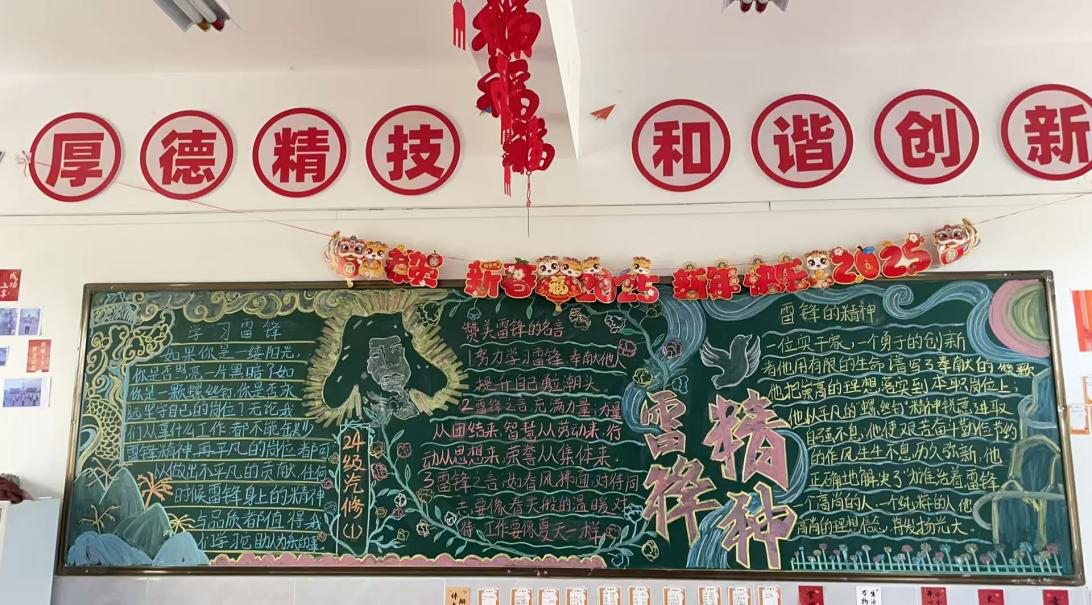 厚德精技
和谐创新
福
福
福
恭贺
新春
2025
新年
快乐
2025
学习雷锋
如果你是一缕阳光,
你是否照亮一片黑暗?如
你是一颗螺丝钉,你是否永
远坚守自己的岗位?无论我
们从事什么工作都不能缺少
雷锋精神,再平凡的岗位都可
以做出不平凡的贡献,任何
时候雷锋身上的精神
与品质都值得我
们学习它助人为乐的
24级汽修(1)
赞美雷锋的名言
1努力学习雷锋,奉献他人
提升自己勇潮头。
2雷锋之言充满力量,力量
从团结来,智慧从劳动来,行
动从思想来,荣誉从集体来.
3雷锋之言,如春风拂面,对待同
志要像春天般的温暖,对
待工作要像夏天一样
雷锋
精神
雷锋的精神
一位实干家,一个勇于的创新
者他用有限的生命谱写了奉献的
他把崇高的理想落实到本职岗位上;
他从平凡的"螺丝钉"精神锐意进取
自强不息,他使艰苦奋斗勤俭节约
的作风生生不息,历久弥新.他
正确地解决了为谁活着雷锋
高尚的人一个纯粹的人他
高尚的理想信念,将发扬光大。